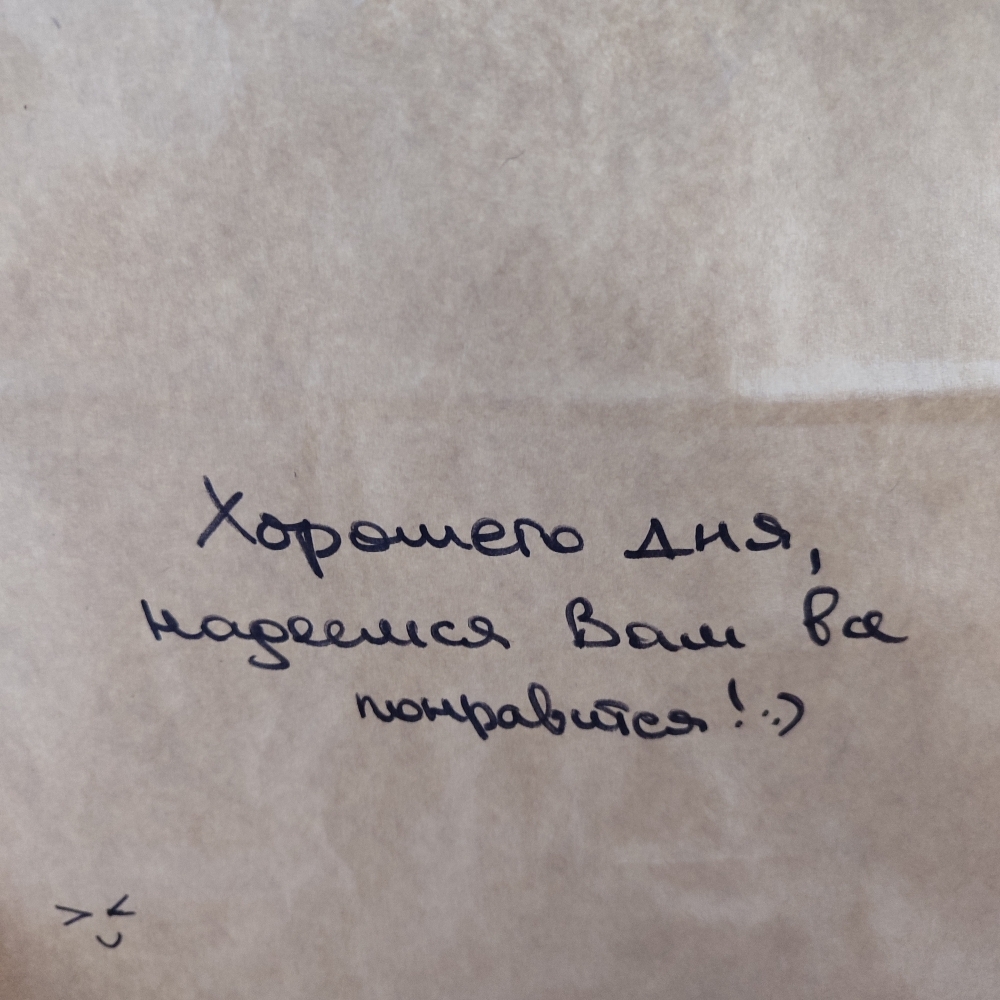 Хорошего дня,
надеемся Вам все
понравится! :)
><